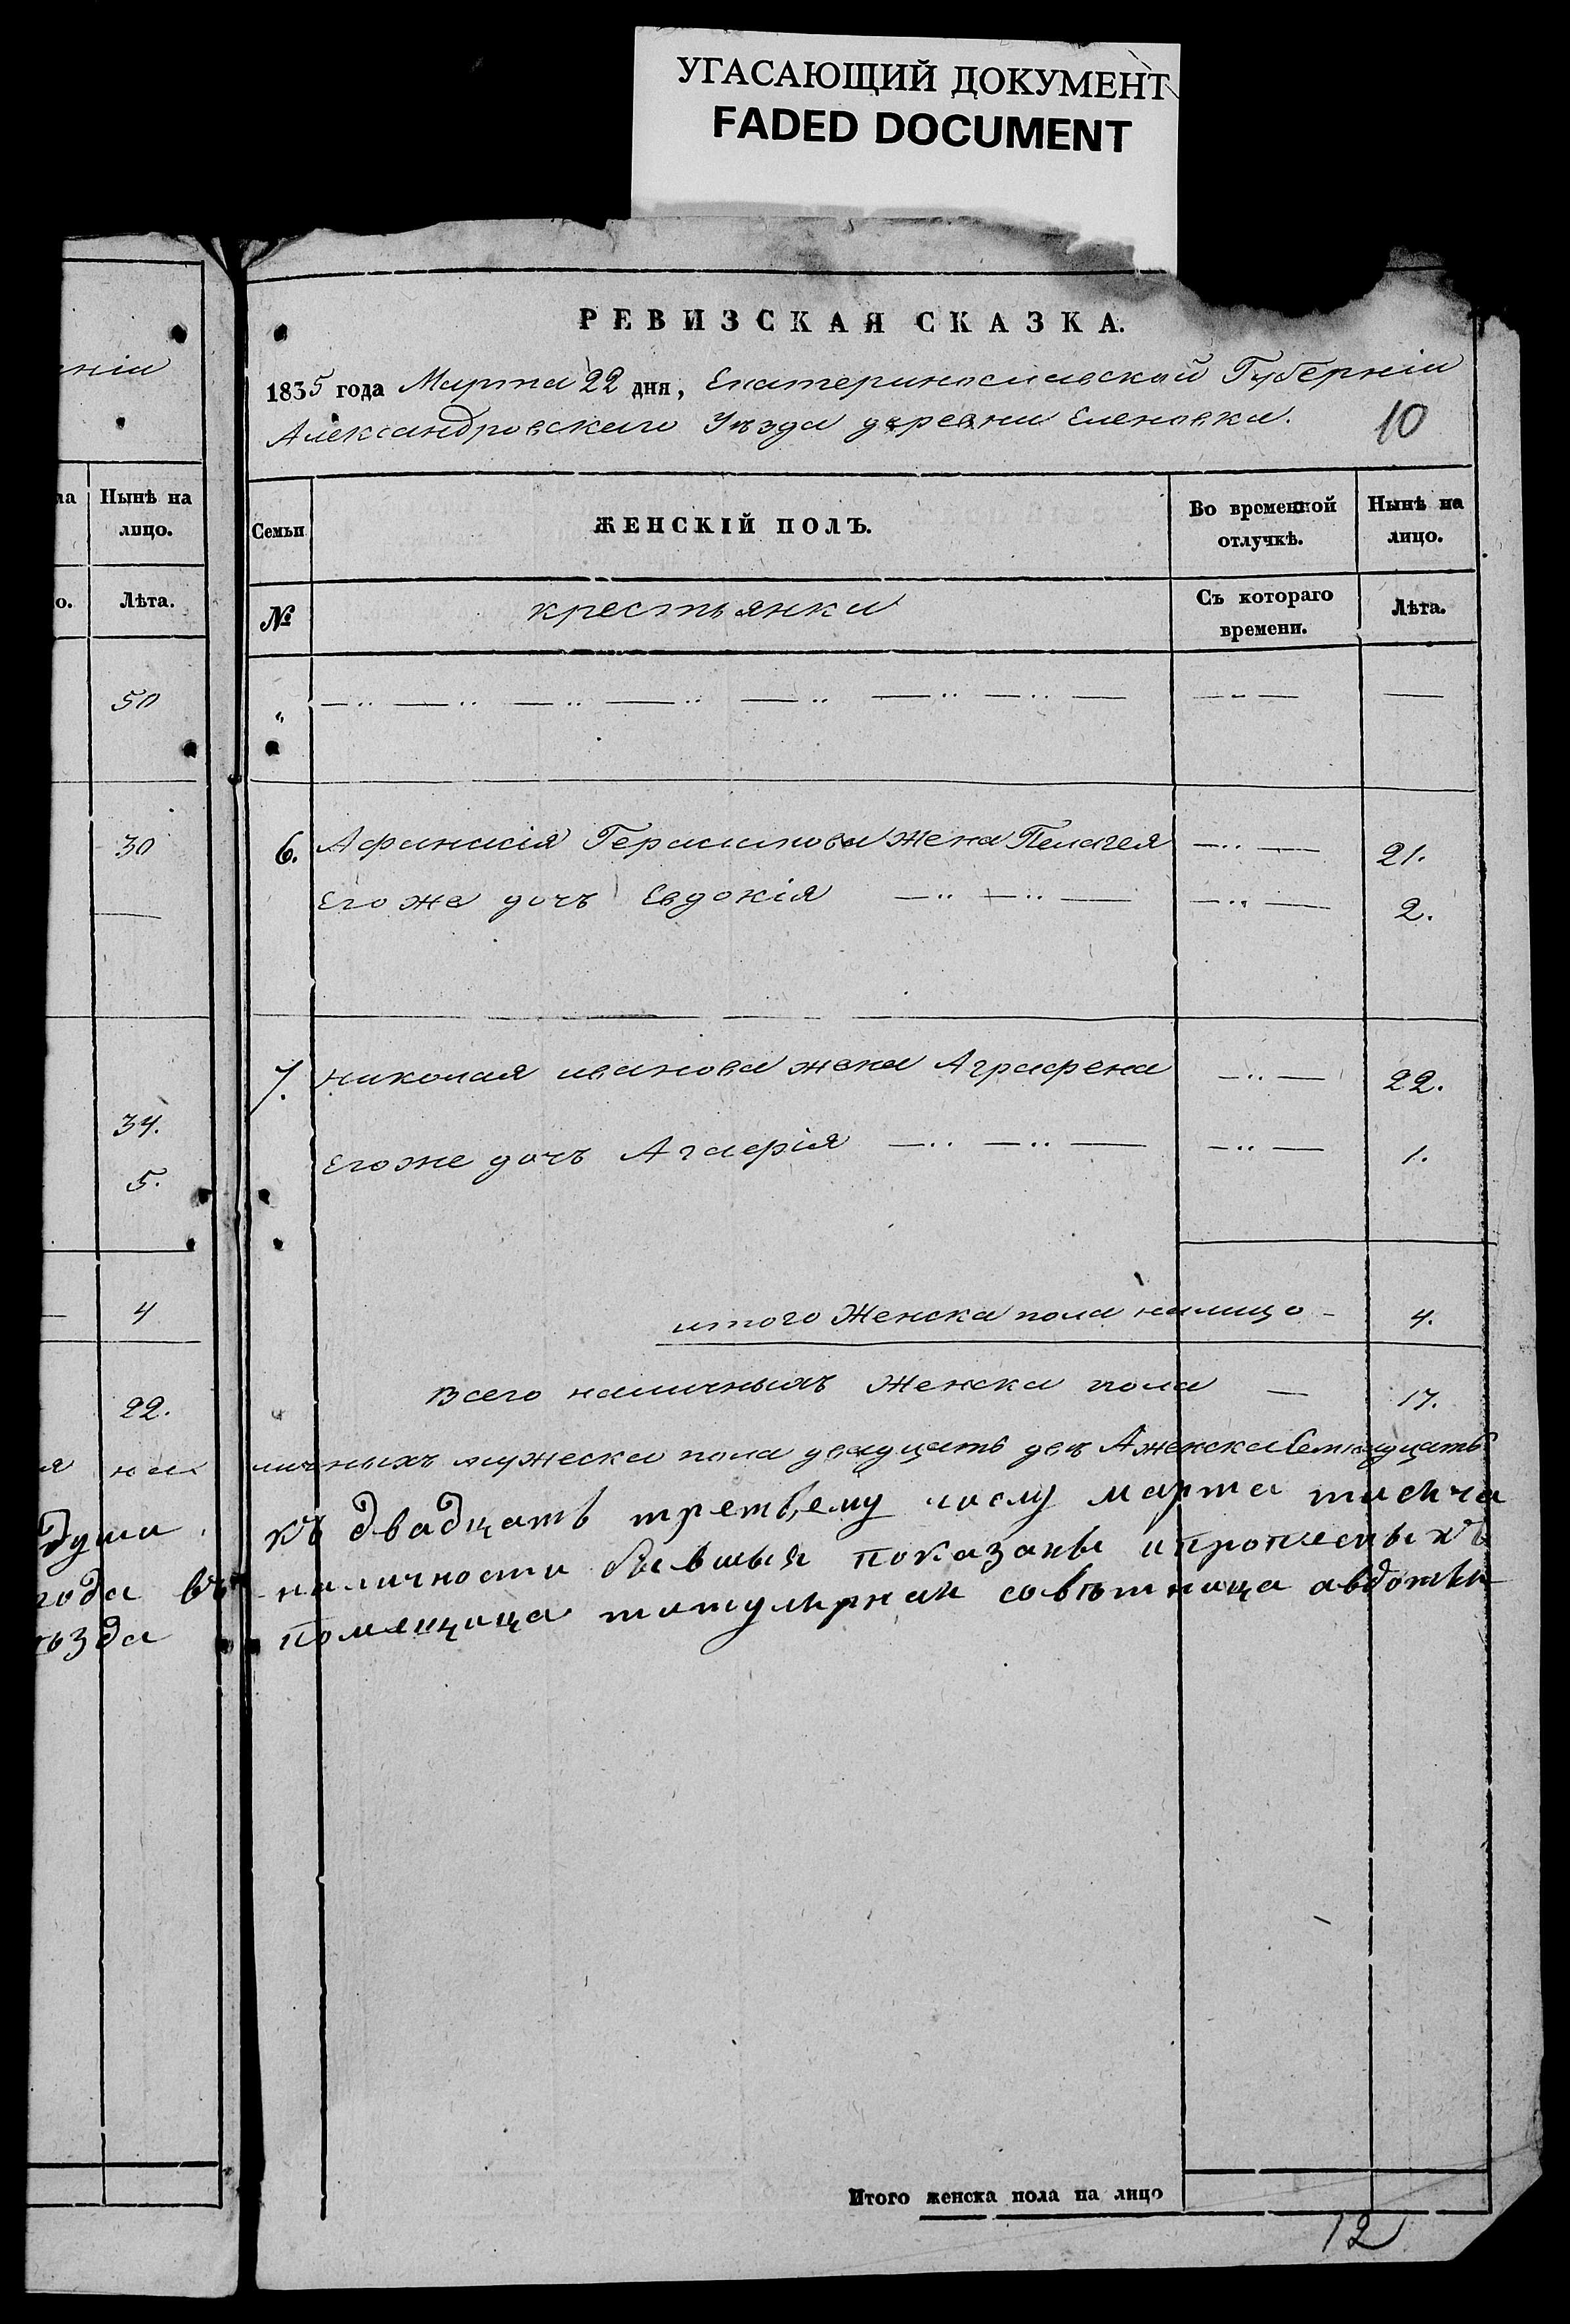 УГАСАЮЩИЙ ДОКУМЕНТ
FADED DOCUMENT
ніи
Нынѣ на
лицо.
о.
Лѣта.
50
30
34.
5.
4
22.
на
душа
года въ
ѣзда
РЕВИЗСКАЯ СКАЗКА.
1835 года Марта 22 дня, Екатеринославской Губерніи
Александровскаго Уѣзда деревни Еленовки.
10
Семьи
ЖЕНСКІЙ ПОЛЪ.
Во временной
отлучкѣ.
Нынѣ на
лицо.
№
крестьянки
Съ котораго
времени.
Лѣта.
6. Афанасія Герасимова жена Пелагея 21.
Его же дочь Евдокія 2.
7. николая иванова жена Аграфена 22.
Его же дочь 1.
итого Женска пола налицо 4.
Всего наличныхъ Женска пола 17.
личныхъ мужеска пола двадцать два А женска Семнадцать
къ двадцать третьему числу марта тысяча
наличности бывшыя показаны и прописныхъ
помещица титулярная советница авдотья
Итого женска пола на лицо
12